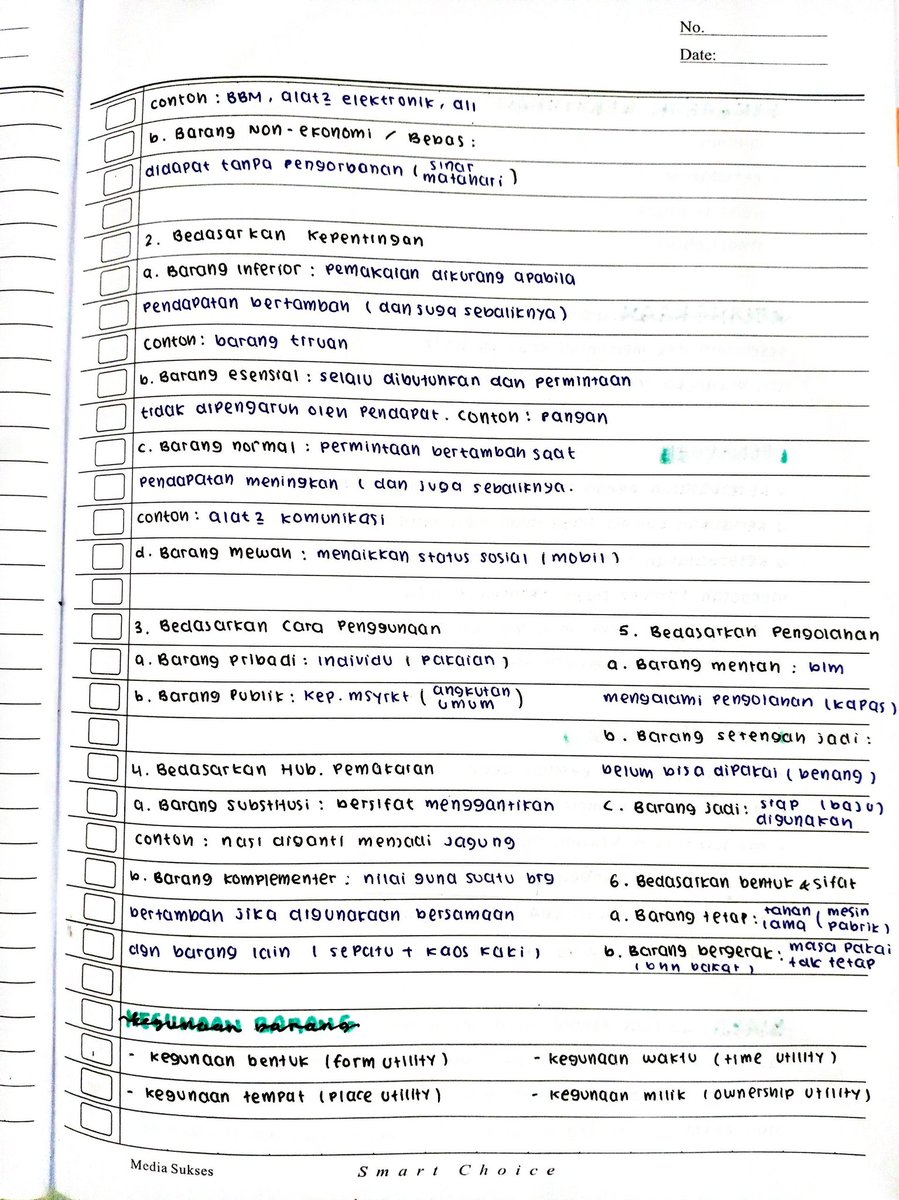 No.
Date:
contoh : BBM, alat2 elektronik, dll
b. Barang Non-ekonomi / Bebas :
didapat tanpa pengorbanan ( sinar matahari )
2. Bedasarkan Kepentingan
a. Barang inferior : pemakaian dikurang apabila
pendapatan bertambah ( dan juga sebaliknya )
contoh : barang tiruan
b. Barang esensial : selalu dibutuhkan dan permintaan
tidak dipengaruh oleh pendapat. contoh : pangan
c. Barang normal : permintaan bertambah saat
pendapatan meningkan ( dan juga sebaliknya.
contoh : alat2 komunikasi
d. Barang mewah : menaikkan status sosial ( mobil )
3. Bedasarkan Cara Penggunaan
a. Barang pribadi : individu ( pakaian )
b. Barang publik : kep. msyrkt ( angkutan umum )
4. Bedasarkan Hub. Pemakaian
a. Barang substitusi : bersifat menggantikan
contoh : nasi diganti menjadi jagung
b. Barang komplementer : nilai guna suatu brg
bertambah jika digunakaan bersamaan
dgn barang lain ( sepatu + kaos kaki )
5. Bedasarkan Pengolahan
a. Barang mentah : blm
mengalami pengolahan (kapas)
b. Barang setengah jadi :
belum bisa dipakai ( benang )
c. Barang jadi : siap digunakan (baju)
6. Bedasarkan bentuk & sifat
a. Barang tetap : tahan lama ( mesin pabrik )
b. Barang bergerak : masa pakai tak tetap
( bhn bakar )
kegunaan barang
- kegunaan bentuk (form utility)
- kegunaan waktu (time utility)
- kegunaan tempat (place utility)
- kegunaan milik (ownership utility)
Media Sukses
Smart Choice